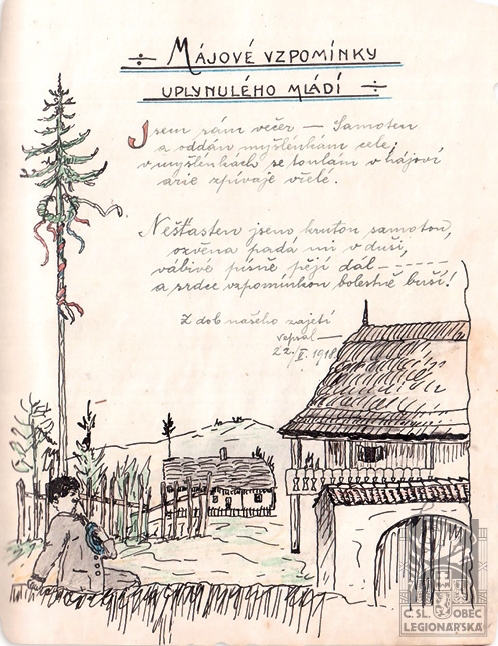 ÷ MÁJOVÉ VZPOMÍNKY
UPLYNULÉHO MLÁDÍ ÷
Jsem sám večer — Samoten
a oddán myšlénkám cele,
v myšlénkách se toulám v hájoví
arie zpívaje vřelé.
Nešťasten jsem krutou samotou,
ozvěna padá mi v duši,
vábivé písně pějí dál – – – – – –
a srdce vzpomínkou bolestně buší!
Z dob našeho zajetí
vepsal —
22./V. 1918.
Č.SL. OBEC
LEGIONÁŘSKÁ